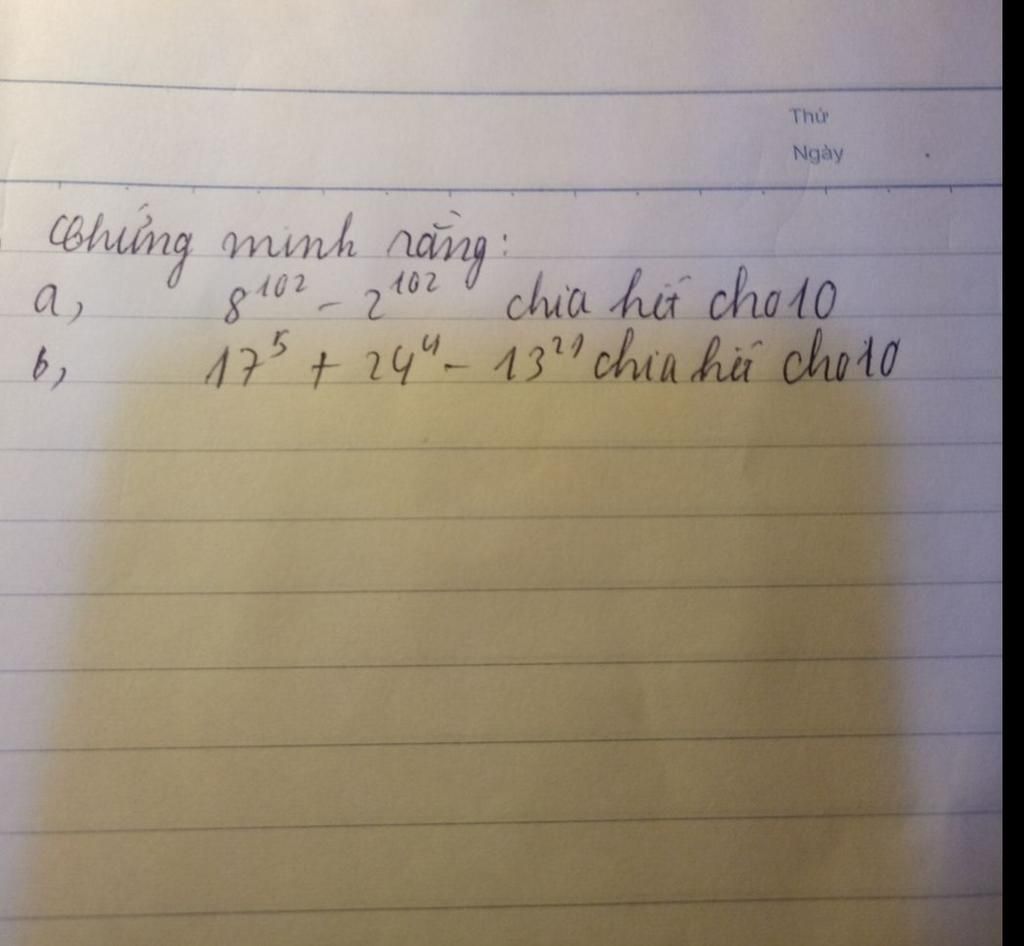 Thứ
Ngày
Chứng minh rằng:
a, 8¹⁰² - 2¹⁰² chia hết cho 10
b, 17⁵ + 24⁴ - 13²¹ chia hết cho 10